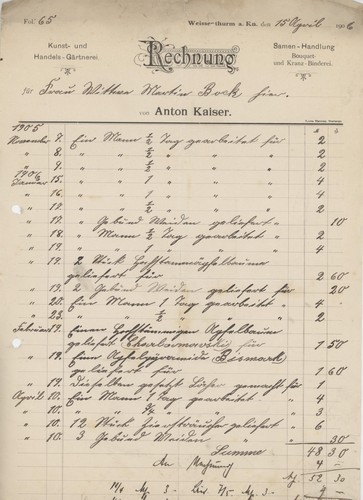 Fol. 65 Weisse-thurm a. Rn. den 15 April 1906
Kunst- und
Handels-Gärtnerei.
Rechnung
Samen-Handlung
Bouquet-
und Kranz-Binderei.
für Frau Wittwe Martin Bock hier.
von Anton Kaiser.
1905
November 7. Ein Mann ½ Tag gearbeitet für 2
" 8. " " ½ " " " 2
" 9. " " ½ " " " 2
1906
Januar 15. " " 1 " " " 4
" 16. " " ½ " " " 2
" 17. " " 1 " " " 4
" 17. Gebund Weiden geliefert " 10
" 18. Mann ½ Tag gearbeitet " 2
" 19. " " 1 " " " 4
" 19. 2 Stück
geliefert für 2 60
" 19. 2 Gebund Weiden geliefert für 20
" 20. Ein Mann 1 Tag gearbeitet " 4
" 25. " " ½ " " " 2
Februar 19. Einen Apfelbaum
geliefert für 1 50
" 19. Eine Apfelpyramide (Bismark)
geliefert für 1 60
" 19. Dieselben gesetzt Löcher gemacht für 1
April 10. Ein Mann 1 Tag gearbeitet " 4
" 10. " " ¾ " " " 3
" 10. 12 Stück Ziersträucher geliefert " 6
" 10. 3 Gebund Weiden " 30
Summe 48 30
4
52 30